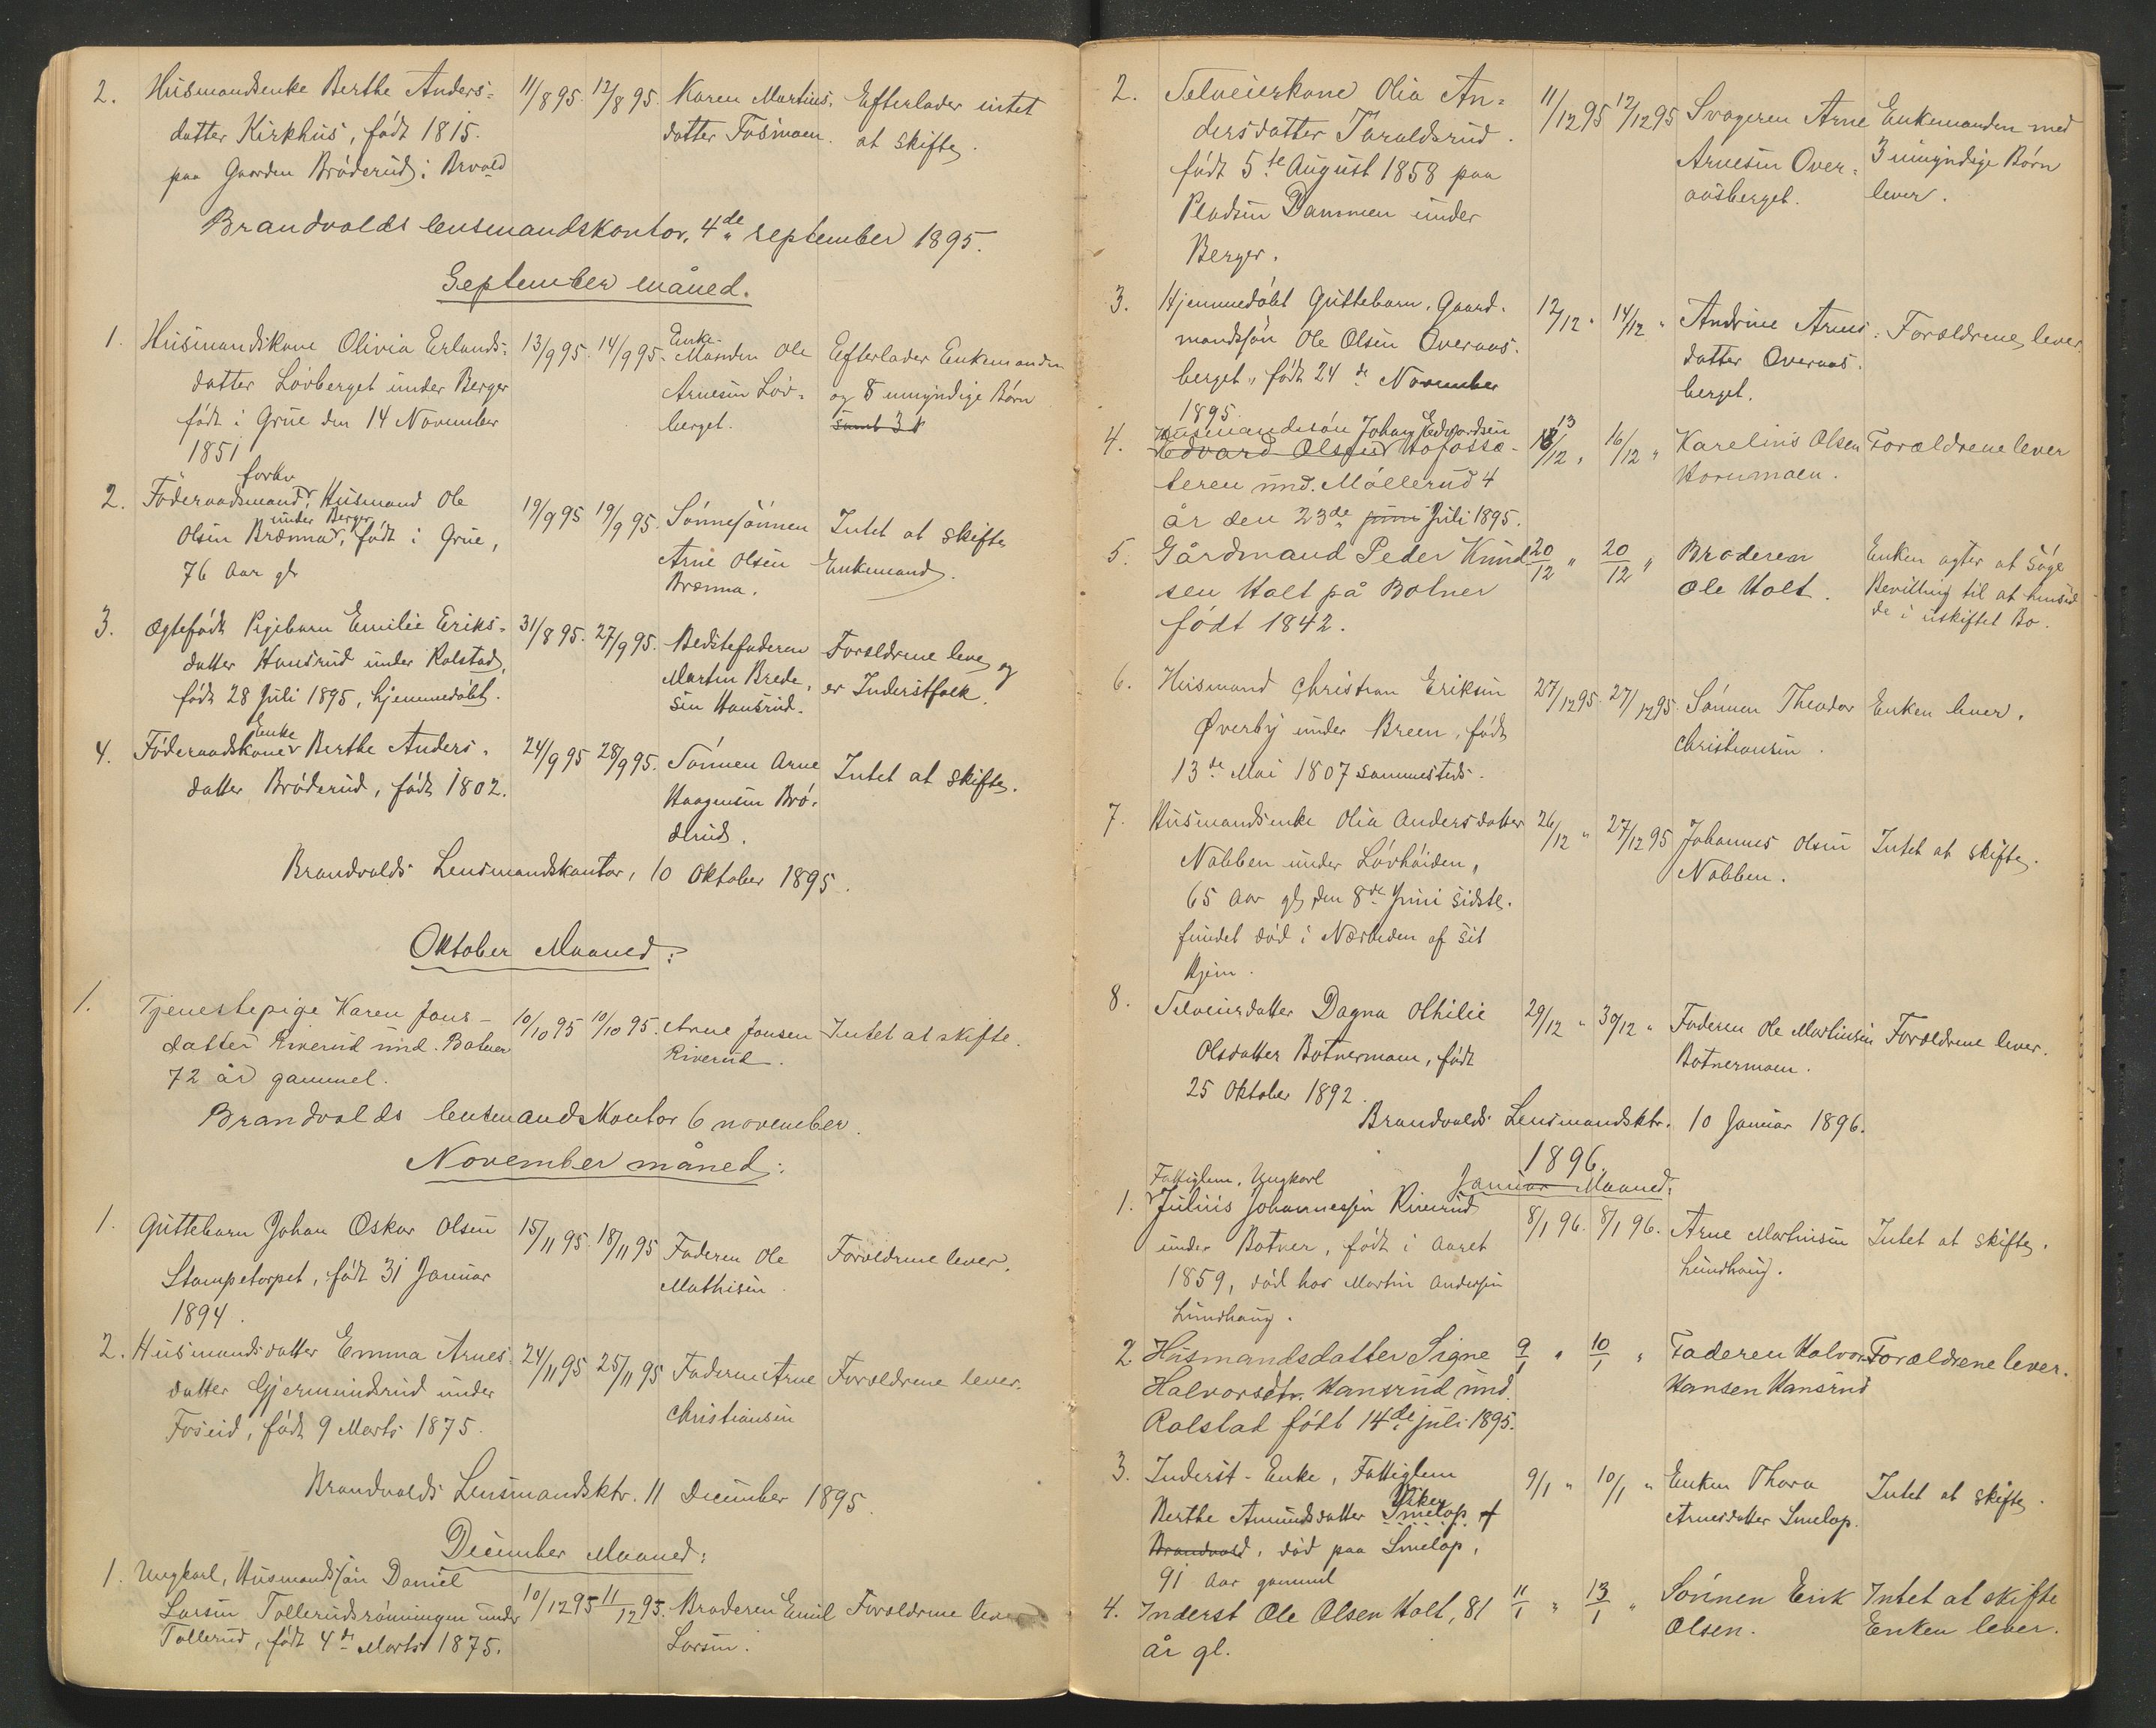 2. Husmandsenke Berthe Anders- 11/8 95. 12/8 95. Karen Martins- Efterlader intet
datter Kirkhus, født 1815. datter Fosmoen. at skifte.
paa Gaarden Brøderud i Brvold
Brandvolds lensmandskontor, 4de september 1895.
September måned.
1. Husmandskone Olivia Erlands- 13/9 95. 14/9 95. Enke-Manden Ole Efterlader Enkemanden
datter Løvberget under Berger Arnesen Løv- og 8 umyndige Børn
født i Grue den 14 November berget. samt 3
1851
2. Føderaadsmand, forhv Husmand Ole 19/9 95 19/9 95. Sønnesønnen Intet at skifte
Olsen Brænna under Berger, født i Grue, Arne Olsen Enkemand.
76 Aar gl Brænna.
3. Ægtefødt Pigebarn Emilie Eriks- 31/8 95. 27/9 95. Bedstefaderen Forældrene leve og
datter Hansrud under Rolstad, Martin Brede- er Inderstfolk.
født 28 Juli 1895, hjemmedøbt. sen Hansrud.
4. Føderaadskone Enke Berthe Anders- 24/9 95 28/9 95. Sønnen Arne Intet at skifte.
datter Brøderud, født 1802. Haagensen Brø-
derud.
Brandvolds Lensmandskontor, 10 Oktober 1895.
Oktober Maaned:
1. Tjenestepige Karen Jons- 10/10 95 10/10 95. Arne Jonsen Intet at skifte.
datter Riverud und. Botner Riverud.
72 år gammel.
Brandvolds lensmandskontor 6 november.
November måned:
1. Guttebarn Johan Oskar Olsen 15/11 95. 18/11 95 Faderen Ole Forældrene lever.
Stampetorpet, født 31 Januar Mathisen.
1894.
2. Husmandsdatter Emma Arnes- 24/11 95 25/11 95 Faderen Arne Forældrene lever.
datter Gjermundsrud under Christiansen
Foseid, født 9 Marts 1875.
Brandvolds Lensmandsktr. 11 December 1895.
December Maaned:
1. Ungkarl, Husmandssøn Daniel 10/12 95 11/12 95. Broderen Emil Forældrene lever
Larsen Tollerudsrønningen under Larsen.
Tollerud, født 4de Marts 1875.
2. Selveierkone Olia An- 11/12 95 12/12 95 Svogeren Arne Enkemanden med
dersdatter Taraldsrud. Arnesen Over- 3 umyndige Børn
født 5te August 1858 paa aasberget. lever.
Pladsen Dammen under
Berger.
3. Hjemmedøbt Guttebarn, Gaard- 12/12 " 14/12 " Andrine Arnes- Forældrene lever.
mandssøn Ole Olsen Overaas- datter Overaas-
berget, født 24de November berget.
1895.
4. Husmandssøn Johan Edvardsen 13/12 " 16/12 " Karelius Olsen Forældrene lever
Edvard Olsen Hofossæ- Kornmoen.
teren und. Møllerud 4
år den 23de juni Juli 1895.
5. Gårdmand Peder Knud- 20/12 " 20/12 " Broderen Enken agter at søge
sen Holt på Botner Ole Holt. Bevilling til at hensid-
født 1842. de i uskiftet Bo.
6. Husmand Christian Eriksen 27/12 95. 27/12 95. Sønnen Theodor Enken lever.
Øverby under Breen, født Christiansen.
13de Mai 1807 sammesteds.
7. Husmandsenke Olia Andersdatter 26/12 " 27/12 95 Johannes Olsen Intet at skifte.
Nabben under Løvhøiden, Nabben.
65 Aar gl, den 8de Juni sidstl.
fundet død i Nærheden af sit
Hjem.
8. Selveierdatter Dagna Othilie 29/12 " 30/12 " Faderen Ole Martinsen Forældrene lever.
Olsdatter Botnermoen, født Botnermoen.
25 Oktober 1892.
Brandvolds Lensmandsktr. 10 Januar 1896.
1896.
Januar Maaned:
Fattiglem, Ungkarl
1. Julius Johannessen Riverud 8/1 96. 8/1 96. Arne Martinsen Intet at skifte.
under Botner, født i Aaret Lundhaug.
1859, død hos Martin Andersen
Lundhaug.
2. Husmandsdatter Signe 9/1 " 10/1 " Faderen Halvor Forældrene lever.
Halvorsdtr. Hansrud und. Hansen Hansrud
Rolstad født 14de juli 1895.
3. Inderst-Enke, Fattiglem 9/1 " 10/1 " Enken Thora Intet at skifte.
Berthe Amundsdatter Smelop af Arnesdatter Smelop.
Brandvold, død paa Smelop,
91 Aar gammel
4. Inderst Ole Olsen Holt, 81 11/1 " 13/1 " Sønnen Erik Intet at skifte
år gl. Olsen. Enken lever.